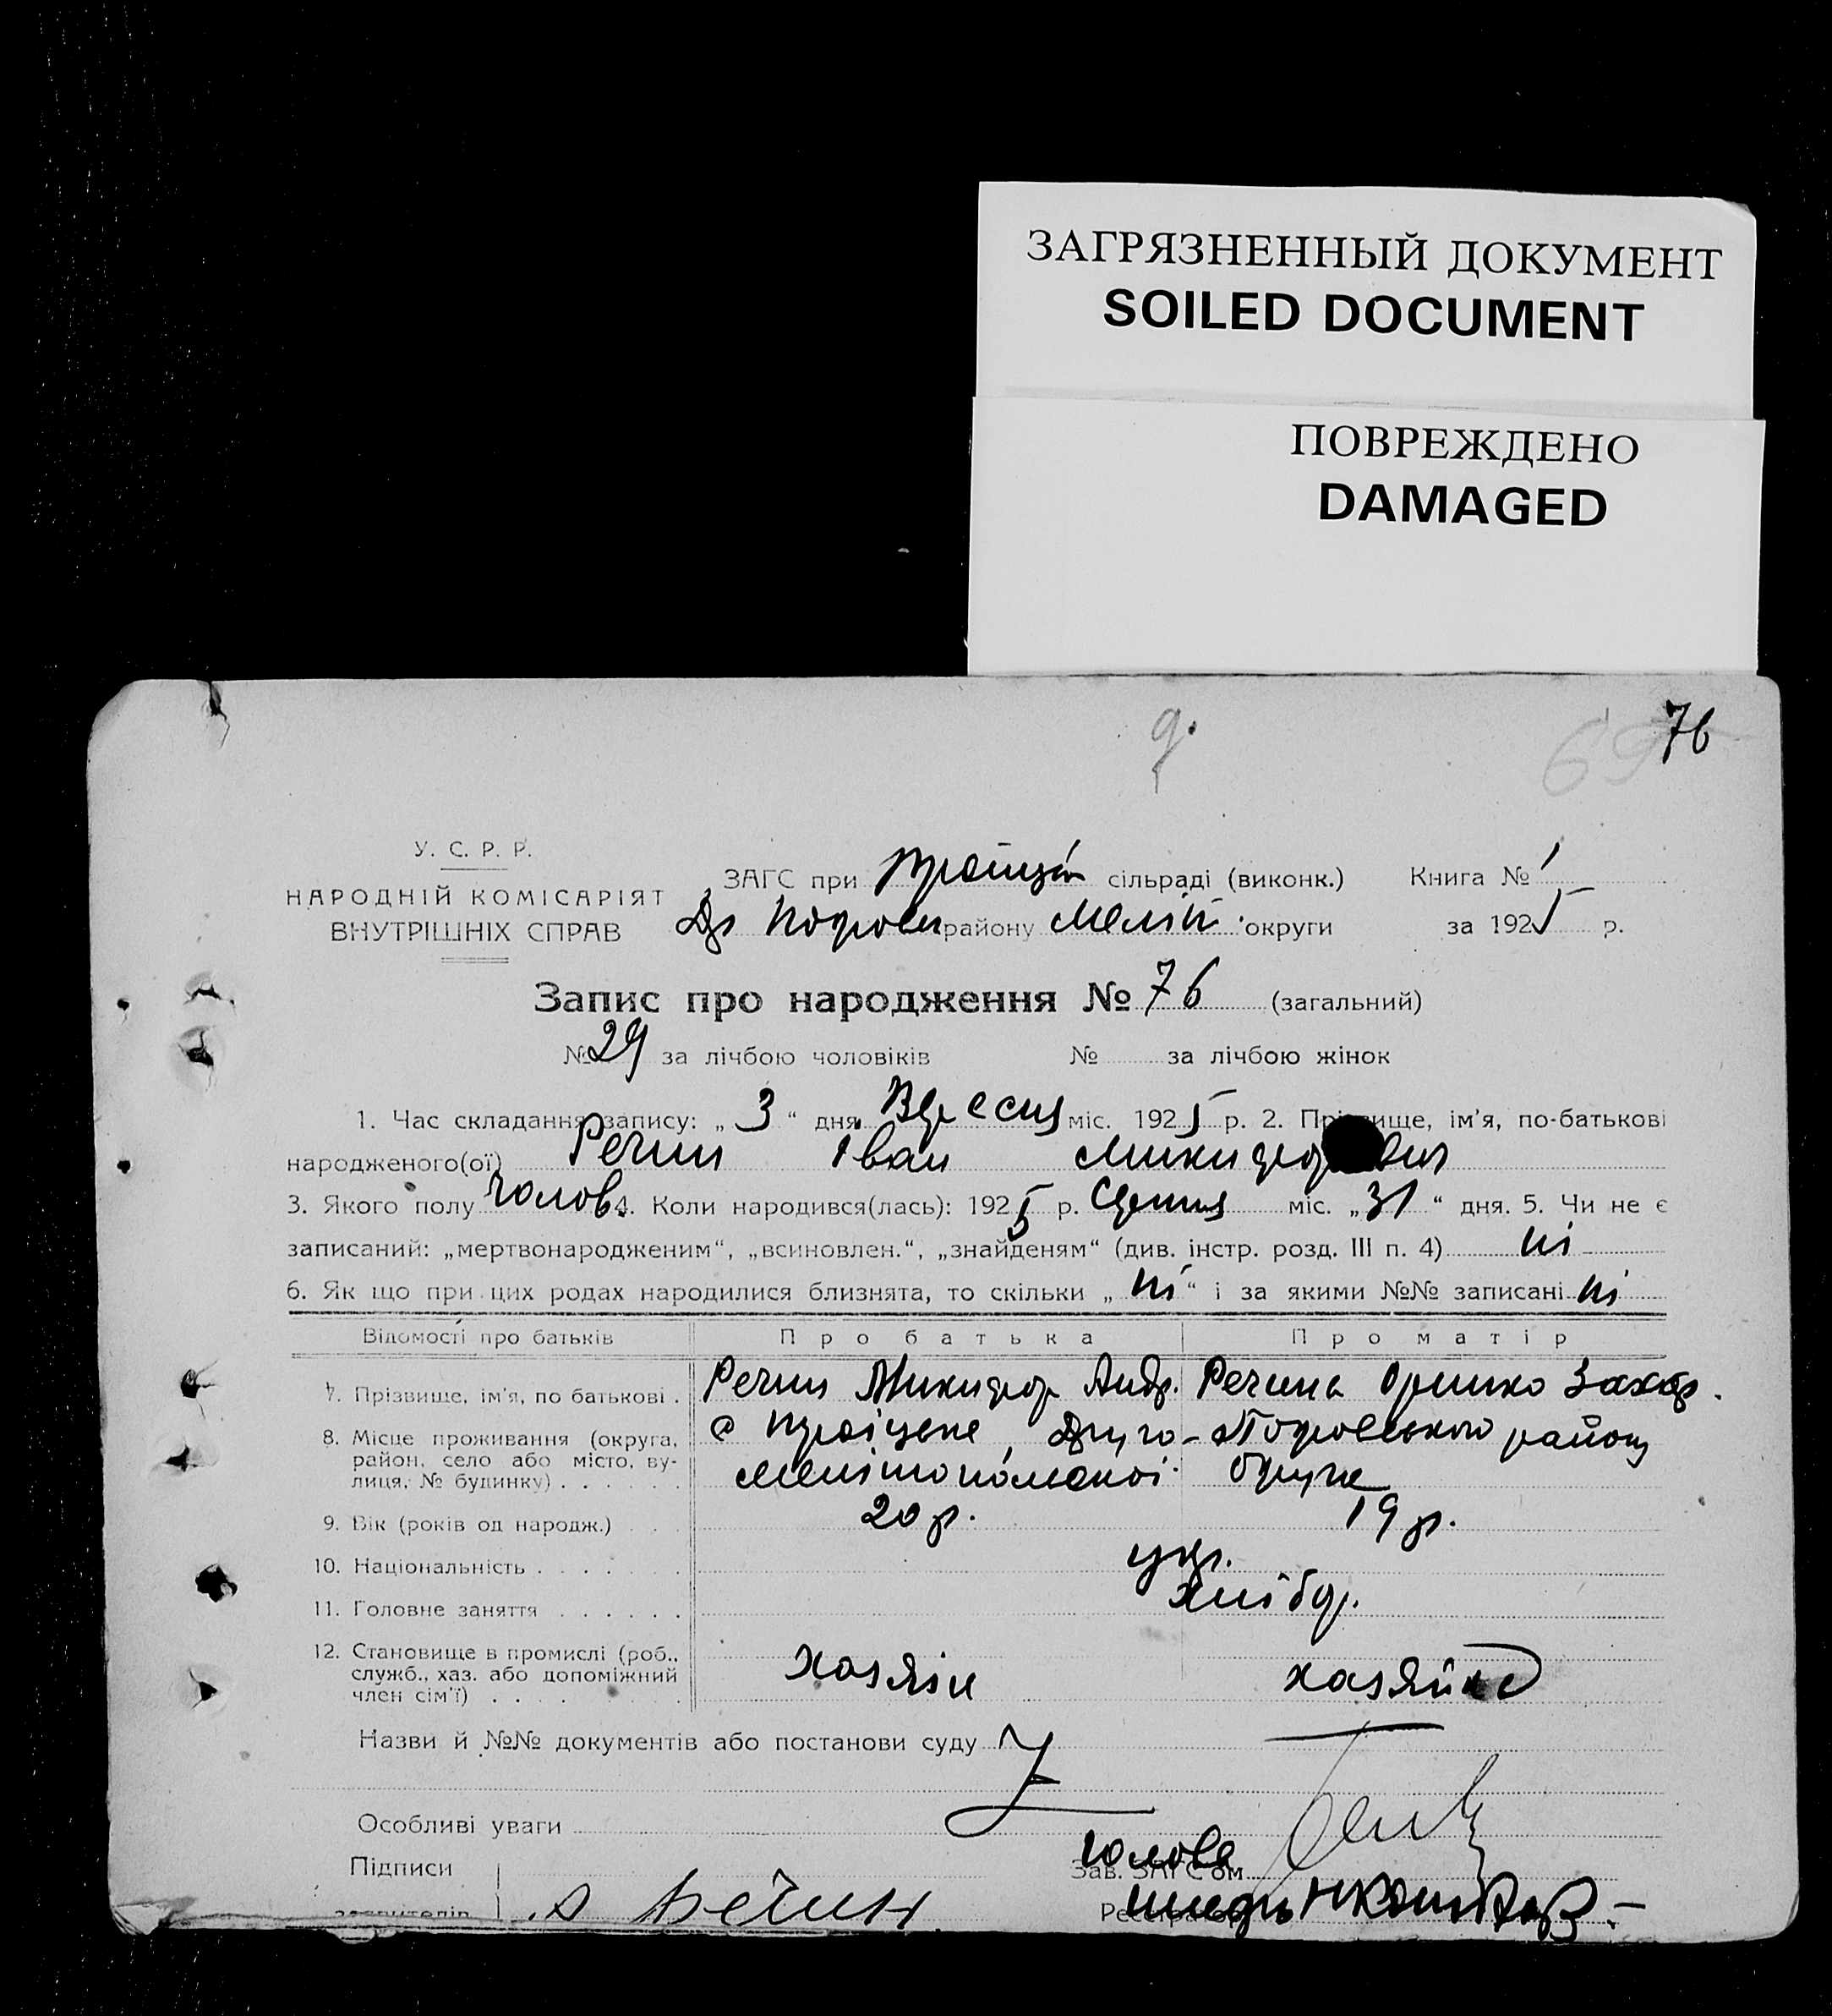 ЗАГРЯЗНЕННЫЙ ДОКУМЕНТ
SOILED DOCUMENT
ПОВРЕЖДЕНО
DAMAGED
76
69
У. С. Р. Р.
НАРОДНІЙ КОМІСАРІЯТ
ВНУТРІШНІХ СПРАВ
ЗАГС при сільраді (виконк.) Книга № 1
району Меліт. округи за 1925 р.
Запис про народження № 76 (загальний)
№ 29 за лічбою чоловіків № за лічбою жінок
1. Час складання запису: „ 3 “ дня Вересня міс. 1925 р. 2. Прізвище, ім'я, по-батькові
народженого(ої) Речин Іван Микифорович
3. Якого полу чолов. 4. Коли народився(лась): 1925 р. Серпня міс. „ 31 “ дня. 5. Чи не є
записаний: „мертвонародженим“, „всиновлен.“, „знайденям“ (див. інстр. розд. III п. 4) ні
6. Як що при цих родах народилися близнята, то скільки „ ні “ і за якими №№ записані ні
Відомості про батьків Про батька Про матір
7. Прізвище, ім'я, по батькові . Речин Микифор Андр. Речина Оришка Захар.
8. Місце проживання (округа, с Троіцьке, Друго-Покровського району
район, село або місто, ву-
лиця, № будинку) . . . . . . Мелітопольскоі Округи
9. Вік (років од народж.) . . . 20 р. 19 р.
10. Національність . . . . . . укр.
11. Головне заняття . . . . . . хлібор.
12. Становище в промислі (роб.,
служб., хаз. або допоміжний хазяін хазяйка
член сім'ї) . . . .
Назви й №№ документів або постанови суду
Особливі уваги
Підписи Голова
Зав. ЗАГС'ом
заявителів Речин Реєстратор